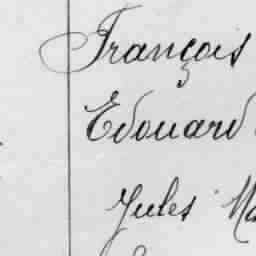 François
Edouard
Jules